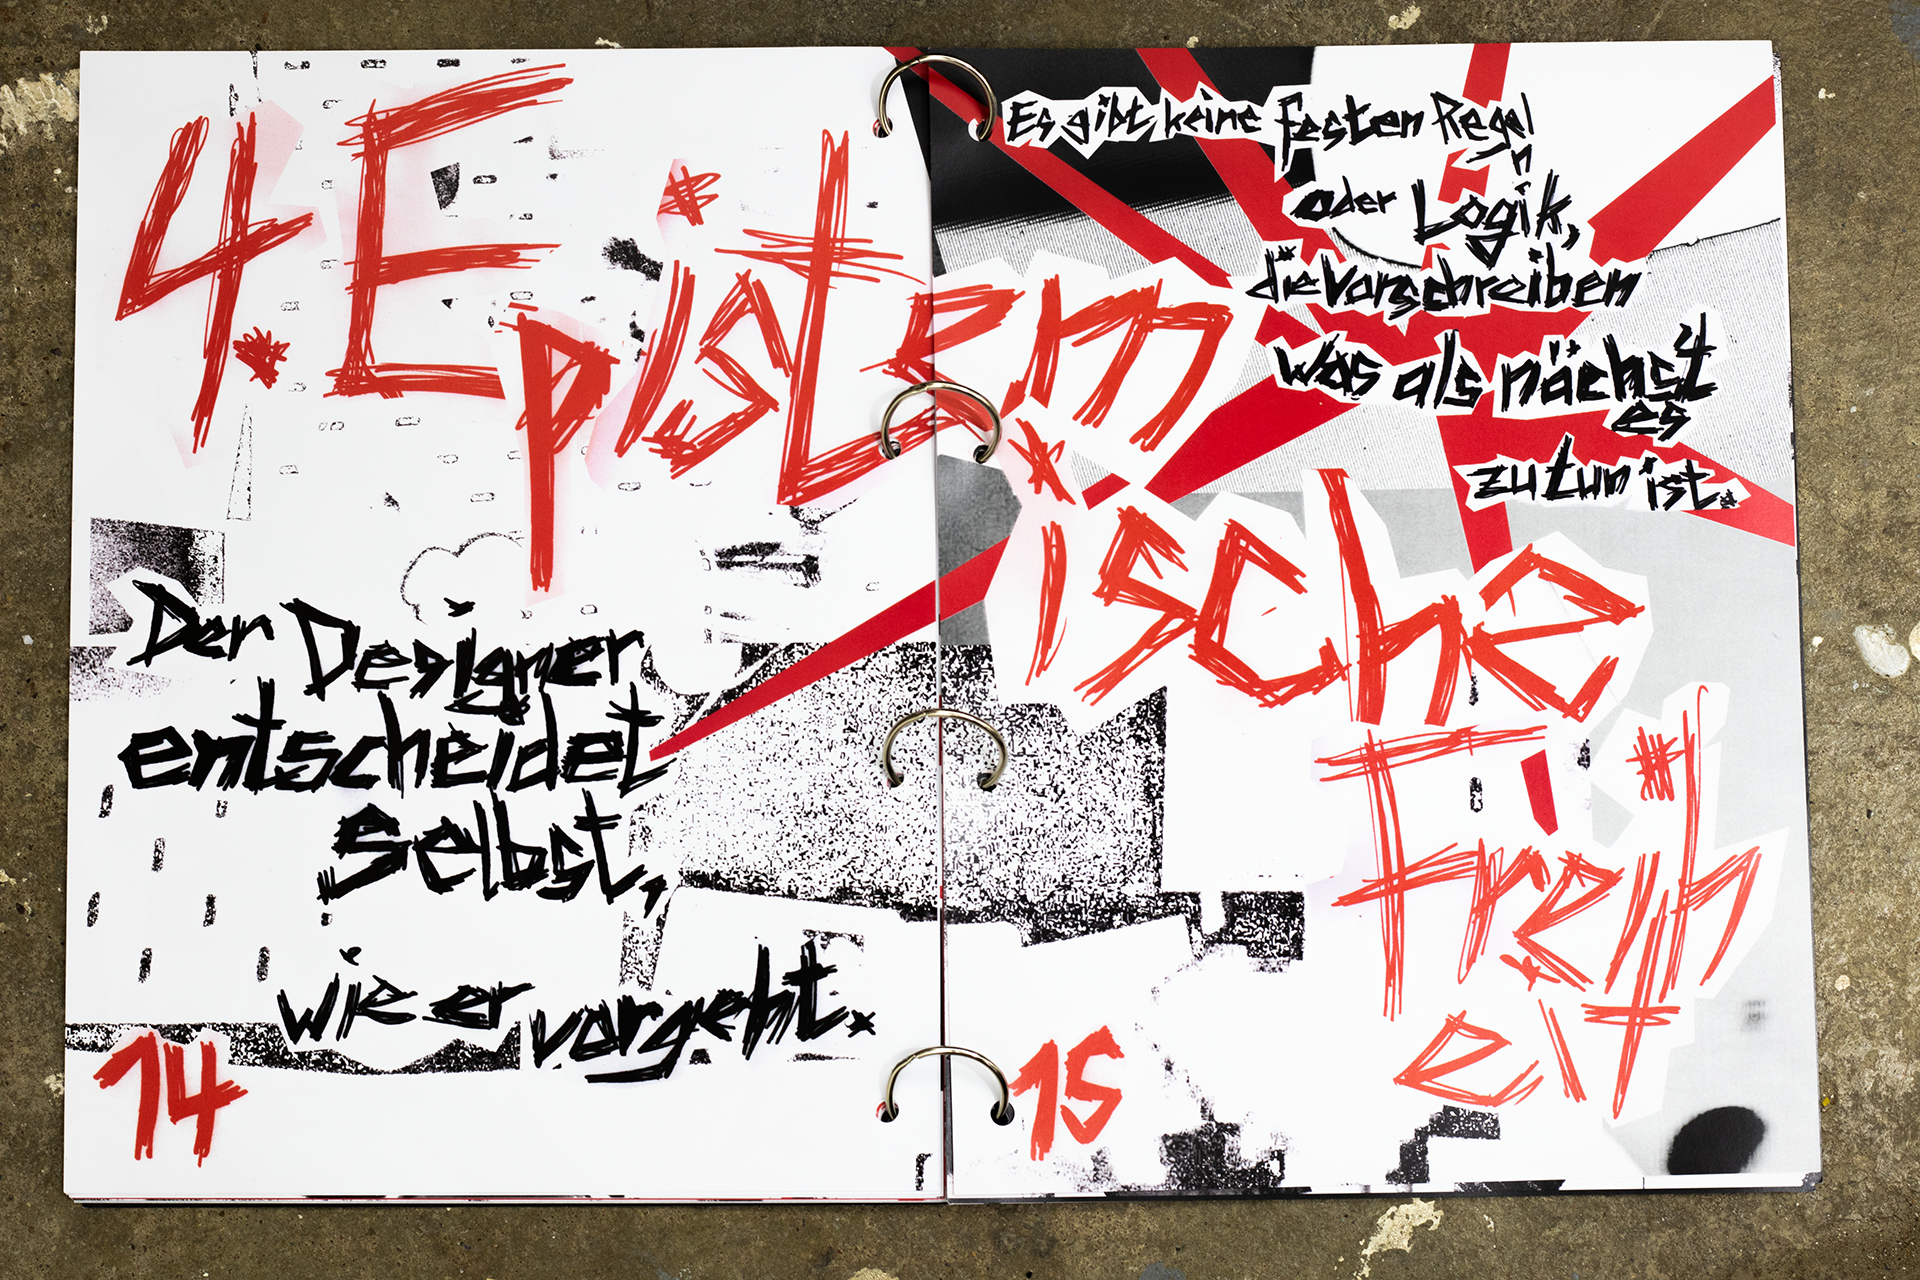 4. Epistem
ische
Freih
eit
Der Designer
entscheidet
selbst,
wie er vorgeht.
14
Es gibt keine festen Regel
n
oder Logik,
die vorschreiben
was als nächst
es
zu tun ist.
15